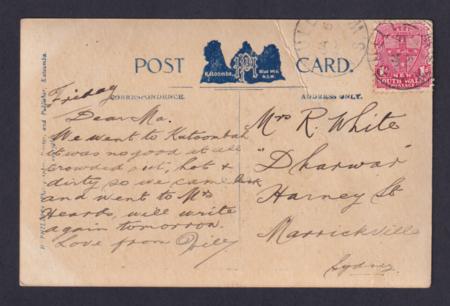 POST CARD.
Katoomba. Blue Mts. N.S.W.
CORRESPONDENCE. ADDRESS ONLY.
NEW
SOUTH WALES
Friday
Dear Ma.
We went to Katoombah
it was no good at all
crowded out, hot &
dirty so we came back
and went to Mrs
Hearts, will write
again tomorrow.
Love from
Mrs R. White
"Dharwar"
Harney St
Marrickville
Sydney